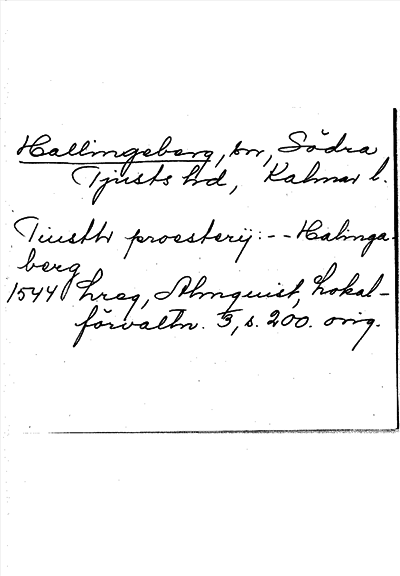 Hallingeberg, sn, Södra
Tjusts hd, Kalmar l.
Tiusth proesterij: -- Halinga-
berg
1544 hreg, Almquist, Lokal-
förvaltn. 3, s. 200. orig.